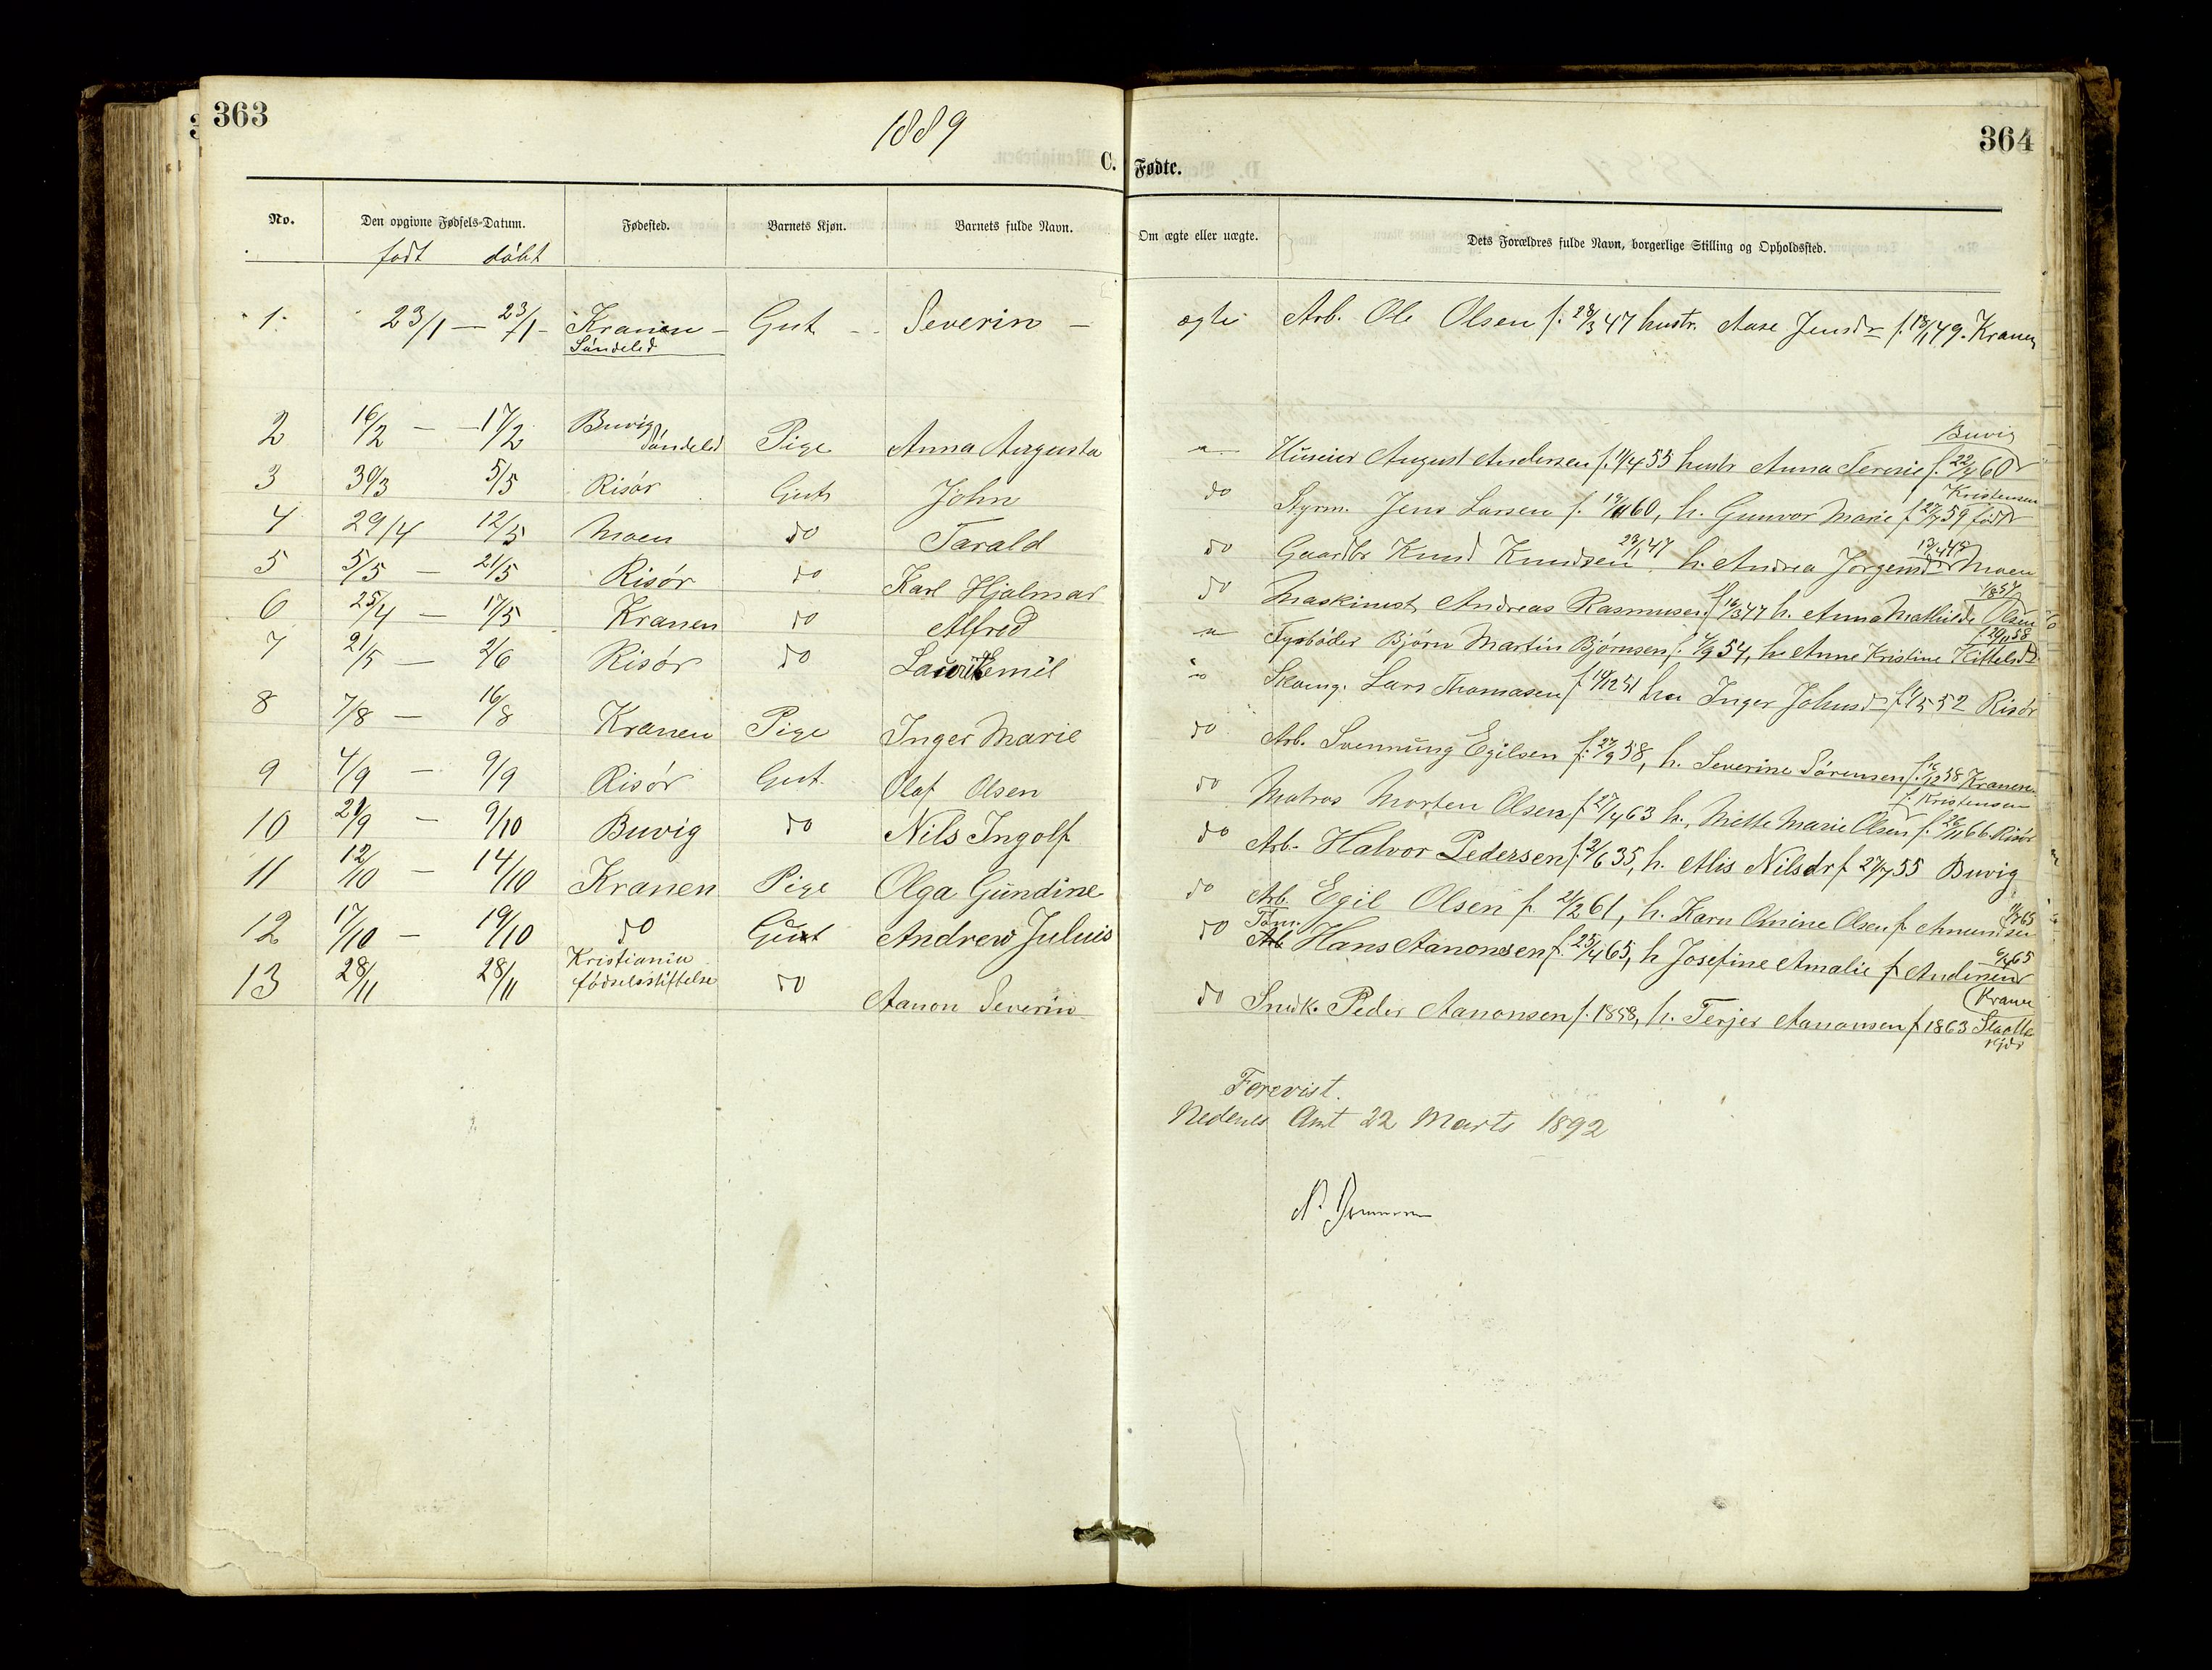 363
1889
C. Fødte.
364
No.
Den opgivne Fødsels-Datum.
født døbt
Fødested.
Barnets Kjøn.
Barnets fulde Navn.
Om ægte eller uægte.
Dets Forældres fulde Navn, borgerlige Stilling og Opholdssted.
1 23/1 — 23/1 - Kranen - Gut - Severin - ægte Arb. Ole Olsen f. 28/3 47 hustr. Aase Jensdr f. 18/1 49. Kranen
Søndeled
Buvig
2 16/2 — 17/2 Buvig Søndeled Pige Anna Augusta Huseier August Andersen f. 11/4 55 hustr Anna Teresie f. 22/4 60
Kristensen
3 30/3 5/5 Risør Gut John do Styrm. Jens Larsen f. 19/11 60, h. Gunvor Marie f 27/7 59 født
4 29/4 12/5 Moen do Tarald do Gaardbr Knud Knudsen 23/1 47 h. Andrea Jørgensdr Moen
5 5/5 — 21/5 Risør do Karl Hjalmar do Maskinist Andreas Rasmusen f 16/3 47 h. Anna Mathilde Olsen
6 25/4 — 17/5 Kranen do Alfred Fyrbøder Bjørn Martin Bjørnsen f. 4/9 54, h. Anne Kristine Kittelsd
7 21/5 — 2/6 Risør do Emil Lars Thomasen f 14/12 51 Inger Johnsd f 1/5 52 Risør
8 7/8 — 16/8 Kranen Pige Inger Marie do Arb. Svennung Egilsen f. 27/9 58, h. Severine Sørensen f. 16/12 58 Kranen
f. Kristensen
9 4/9 — 9/9 Risør Gut Olaf Olsen do Matros Morten Olsen f 27/4 63 h. Mette Marie Olsen f. 26/11 66. Risør
10 21/9 — 9/10 Buvig do Nils Ingolf do Arb. Halvor Pedersen f. 2/6 35, h. Alis Nilsdr f 27/7 55 Buvig
11 12/10 — 14/10 Kranen Pige Olga Gundine do Arb. Egil Olsen f. 21/2 61, h. Karn Omine Olsen f. Amundsen
12 17/10 — 19/10 do Gut Andrew Juluis do Hans Aanonsen f. 25/4 65, h Josefine Amalie f Andersen
Kranen
13 28/11 28/11 Kristiania fødselsstiftelse do Aanon Severin do Snedk. Peder Aanonsen f. 1858, h. Terjer Aanonsen f 1863
Forevist.
Nedenes Amt 22 Marts 1892